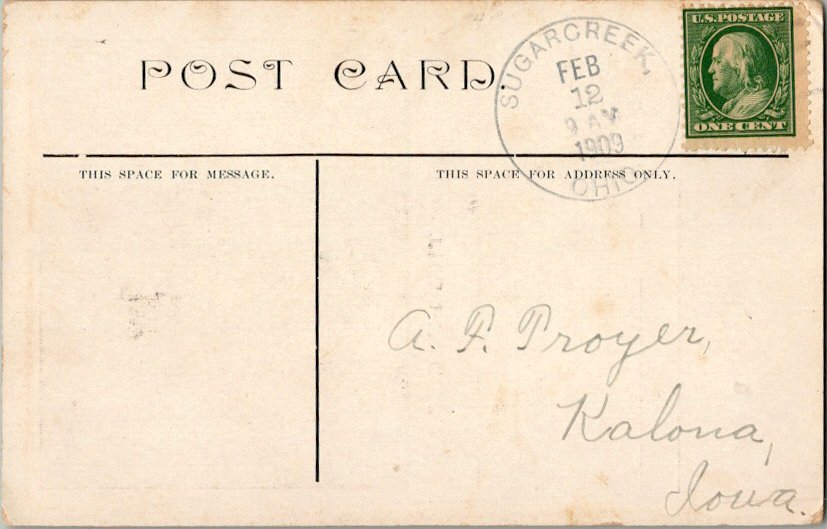 POST CARD.
SUGARCREEK,
FEB
12
9 AM
1909
OHIO
U.S. POSTAGE
ONE CENT
THIS SPACE FOR MESSAGE.
THIS SPACE FOR ADDRESS ONLY.
A. P. Troyer,
Kalona,
Iowa.